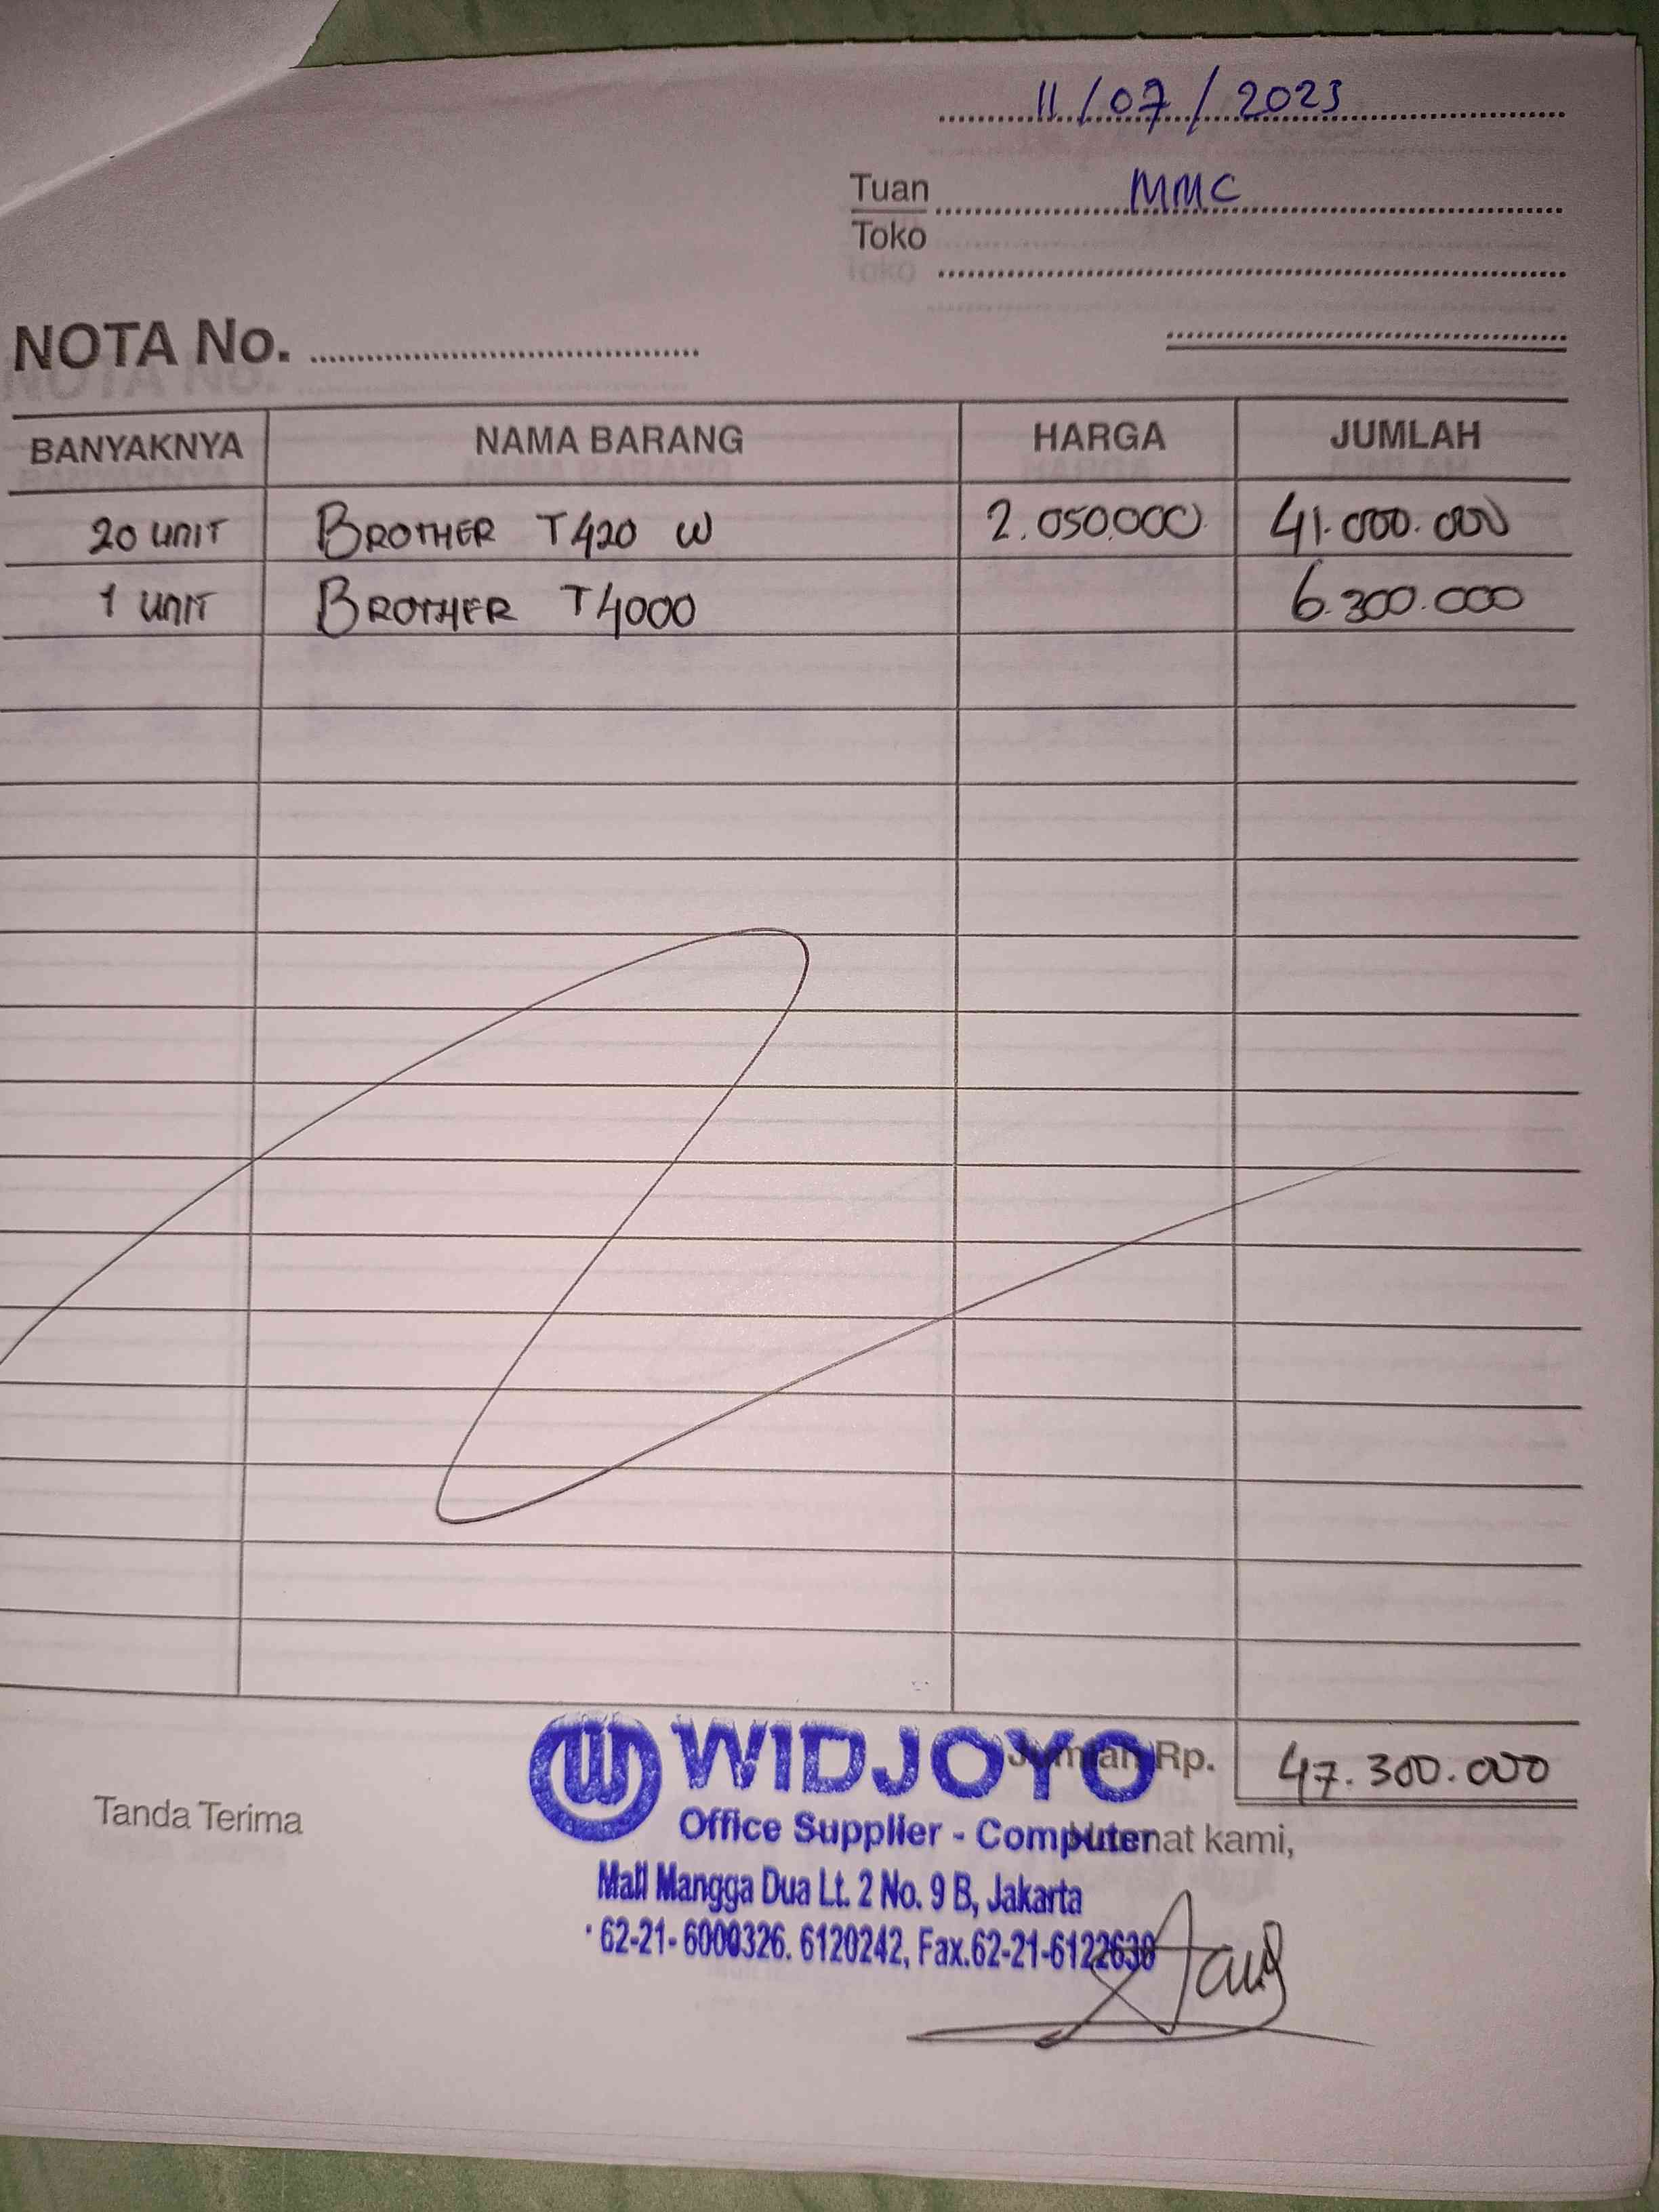 11/07/2023
Tuan MMC
Toko
NOTA No.
BANYAKNYA NAMA BARANG HARGA JUMLAH
20 UNIT BROTHER T420 W 2.050.000 41.000.000
1 UNIT BROTHER T4000 6.300.000
WIDJOYO Jumlah Rp. 47.300.000
Tanda Terima
Office Supplier - Computer Hormat kami,
Mall Mangga Dua Lt. 2 No. 9 B, Jakarta
62-21-6000326. 6120242, Fax.62-21-6122638